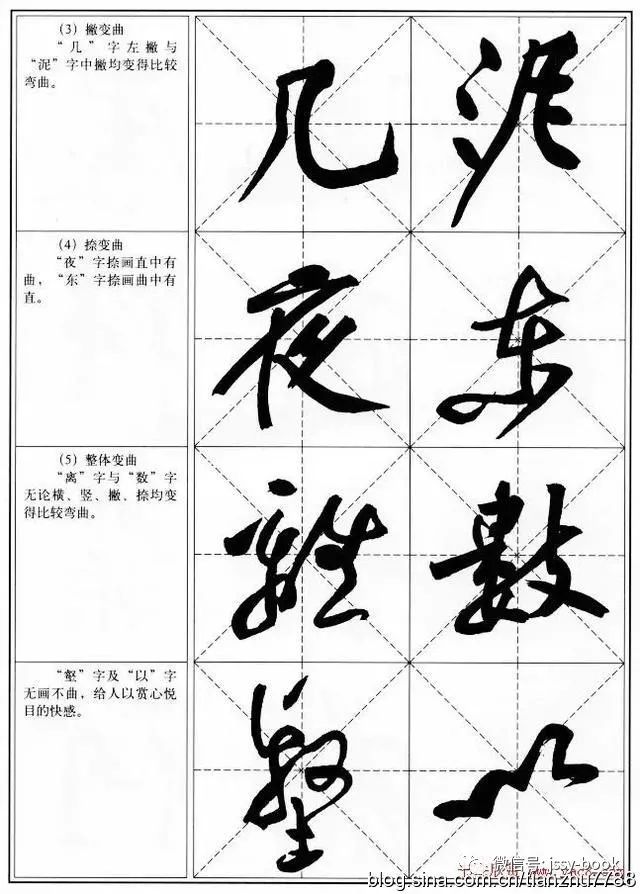 （3）撇变曲
“几”字左撇与
“泥”字中撇均变得比较
弯曲。
几 泥
（4）捺变曲
“夜”字捺画直中有
曲，“东”字捺画曲中有
直。
夜 东
（5）整体变曲
“离”字与“数”字
无论横、竖、撇、捺均变
得比较弯曲。
離 數
“壑”字及“以”字
无画不曲，给人以赏心悦
目的快感。
壑 以
微信号: jssy-book
blog.sina.com.cn/tianzhu7788